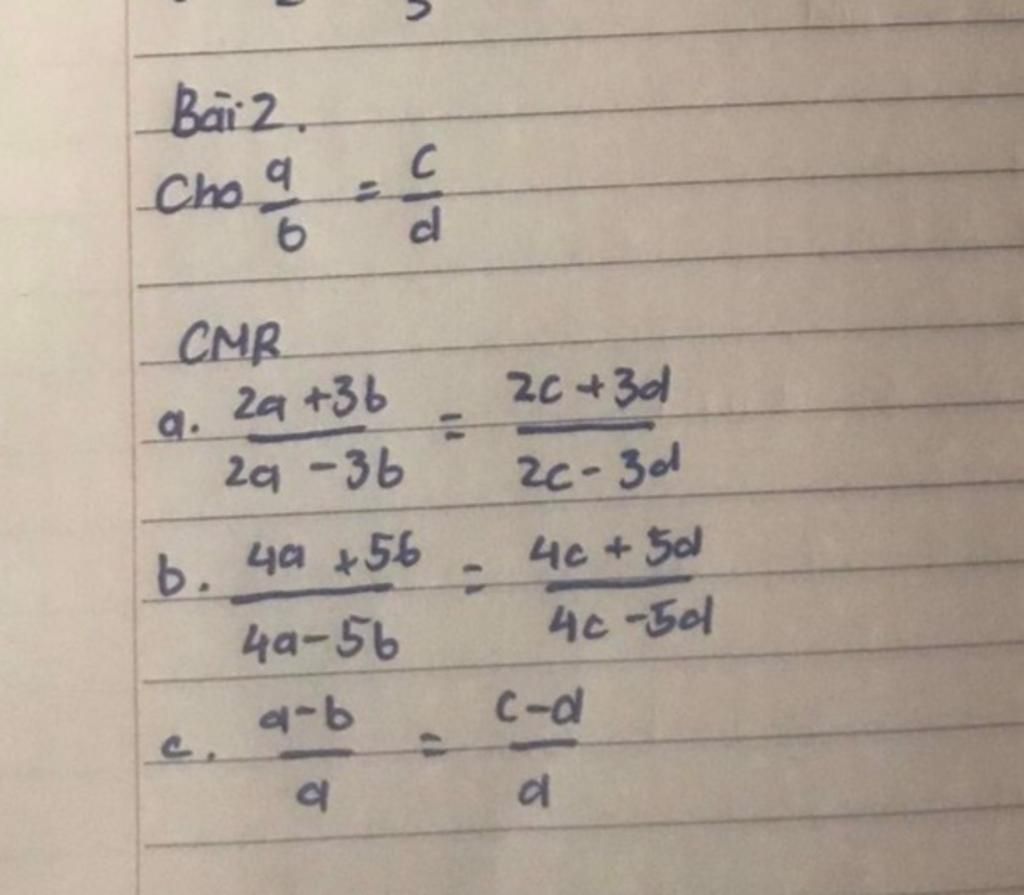 Bài 2.
Cho a/b = c/d
CMR
a. 2a + 3b / 2a - 3b = 2c + 3d / 2c - 3d
b. 4a + 5b / 4a - 5b = 4c + 5d / 4c - 5d
c. a - b / a = c - d / a